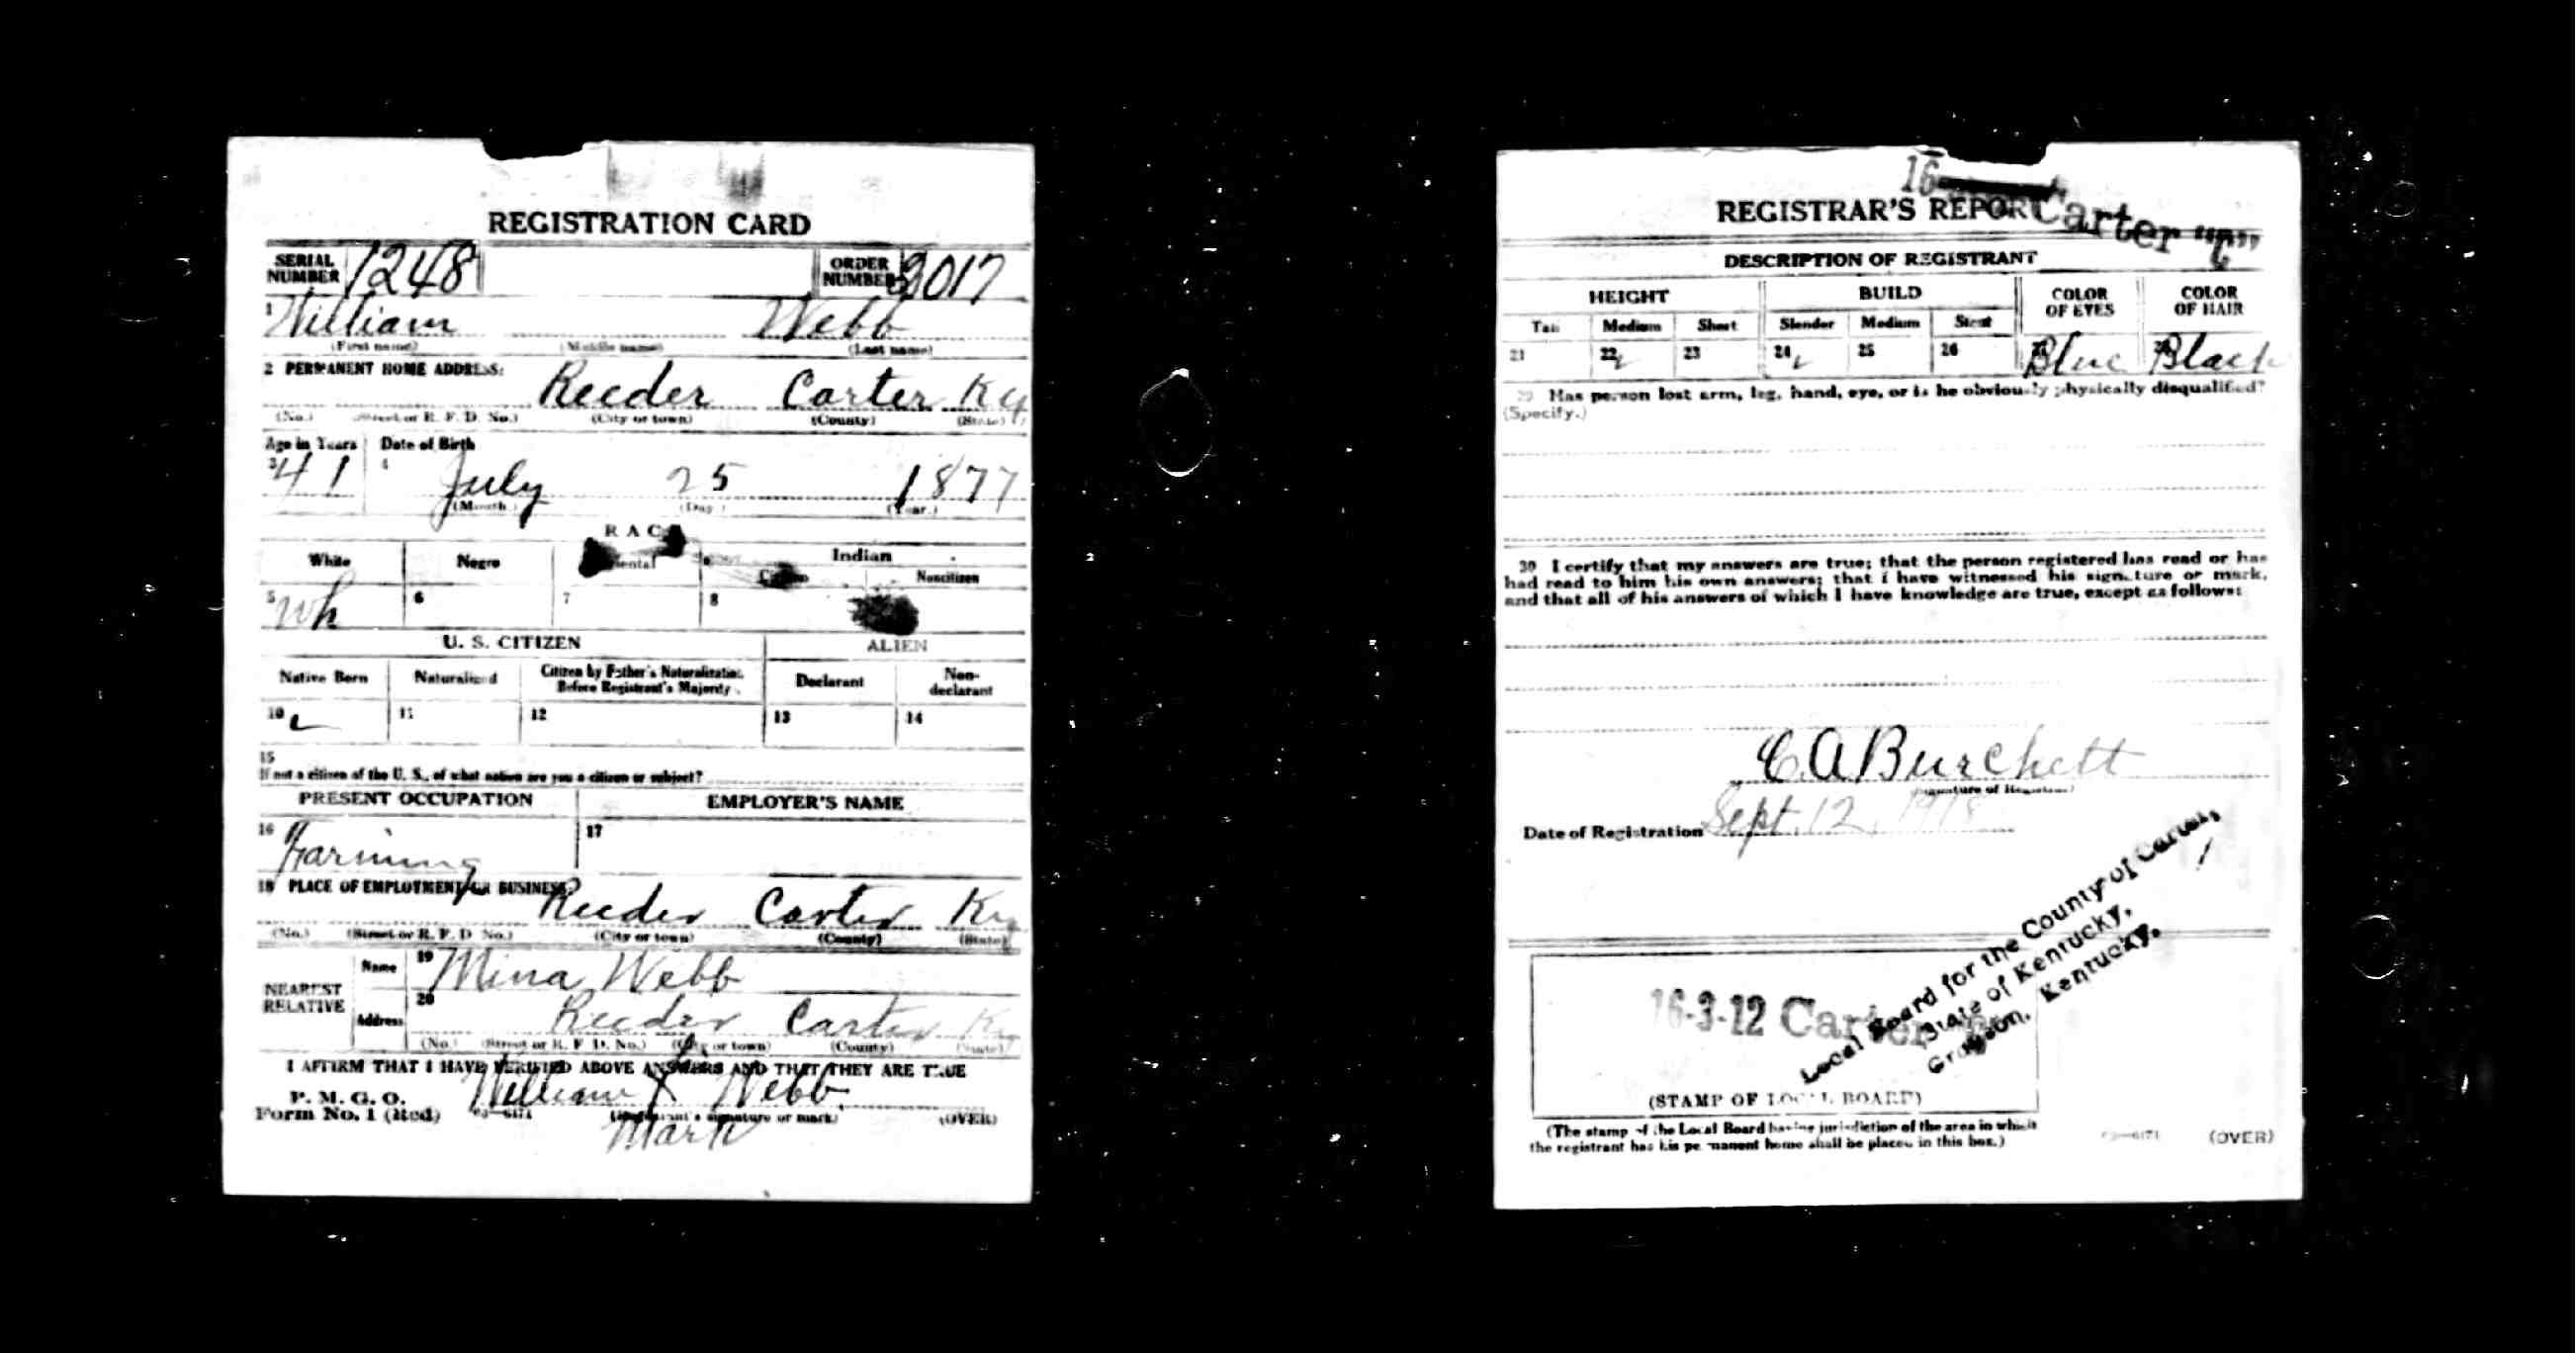 REGISTRATION CARD
SERIAL NUMBER 1248 ORDER NUMBER 3017
1 William Webb
(First name) (Middle name) (Last name)
2 PERMANENT HOME ADDRESS:
Reeder Carter Ky
(No.) (Street or R. F. D. No.) (City or town) (County) (State)
Age in Years Date of Birth
3 41 4 July 25 1877
(Month.) (Day.) (Year.)
RACE
White Negro Oriental Indian
Citizen Noncitizen
5 Wh 6 7 8
U. S. CITIZEN ALIEN
Native Born Naturalized Citizen by Father's Naturalization Before Registrant's Majority Declarant Non-declarant
10 11 12 13 14
15
If not a citizen of the U. S., of what nation are you a citizen or subject?
PRESENT OCCUPATION EMPLOYER'S NAME
16 Farming 17
18 PLACE OF EMPLOYMENT OR BUSINESS:
Reeder Carter Ky
(No.) (Street or R. F. D. No.) (City or town) (County) (State)
NEAREST RELATIVE Name 19 Mina Webb
Address 20 Reeder Carter Ky
(No.) (Street or R. F. D. No.) (City or town) (County) (State)
I AFFIRM THAT I HAVE VERIFIED ABOVE ANSWERS AND THAT THEY ARE TRUE
P. M. G. O.
Form No. 1 (Red) 03-6171 William X Webb
(Registrant's signature or mark) (OVER)
Mark
16 Carter "C"
REGISTRAR'S REPORT
DESCRIPTION OF REGISTRANT
HEIGHT BUILD COLOR OF EYES COLOR OF HAIR
Tall Medium Short Slender Medium Stout
21 22 23 24 25 26 Blue Black
29 Has person lost arm, leg, hand, eye, or is he obviously physically disqualified?
(Specify.)
30 I certify that my answers are true; that the person registered has read or has
had read to him his own answers; that I have witnessed his signature or mark,
and that all of his answers of which I have knowledge are true, except as follows:
C. A Burchett
(Signature of Registrar)
Date of Registration Sept. 12, 1918
Local Board for the County of Carter,
State of Kentucky,
Grayson, Kentucky.
16-3-12 Carter
(STAMP OF LOCAL BOARD)
(The stamp of the Local Board having jurisdiction of the area in which
the registrant has his permanent home shall be placed in this box.)
03-6171 (OVER)